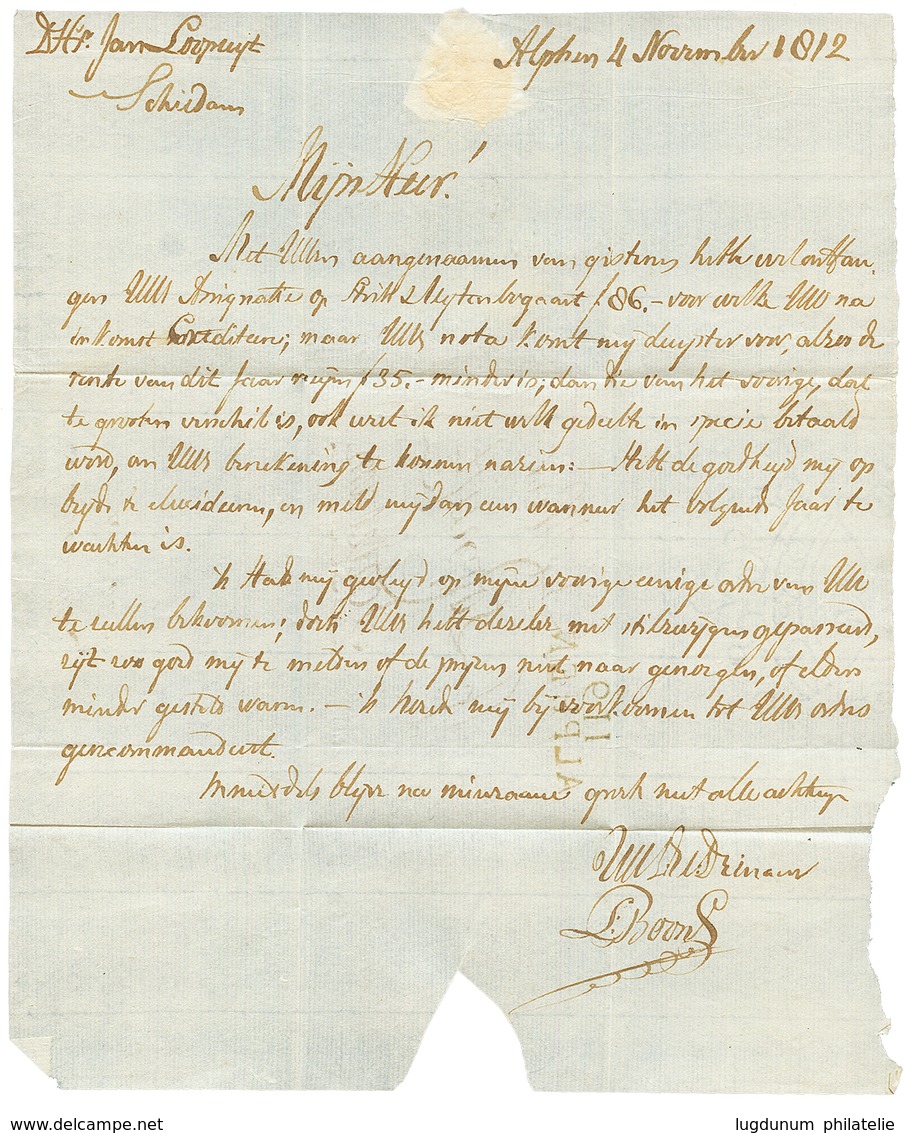 DHr. Jan Loopuyt
Alphen 4 November 1812
Schiedam
MijnHeer!
Met UWEs aangenaamen van gisteren hebbe wel ontfan-
gen UWEs Assignatie op f 86.- voor welke UWE na
inkomst Crediteere; maar UWEs nota komt my duyster voor, alzoo de
rente van dit Jaar ruijm f 35.- minder is, dan die van het voorige, dat
te grooten verschil is, ook weet ik niet welk gedeelte in specie betaald
word, om UWEs berekening te konnen nazien: — Hebt de goedheyd my op
te elucideeren, en meld mijdan eens wanneer het volgende Jaar te
wachten is.
'k Had mij gevleyd op mijne voorige eenige order van UWE
te zullen bekoomen; doch UWE hebt dezelve met stilzwijgen gepasseerd,
zijt zoo goed mij te melden of de pryzen niet naar genoegen, of elders
minder gesteld waren. — 'k houde mij by voorkoomen tot UWEs orders
gerecommandeert.
Inmiddels blyve na minzaame groete met alle achting
UWEd. Dr. Dienaar
P: Boon
ALPHEN
www.delcampe.net
lugdunum philatelie